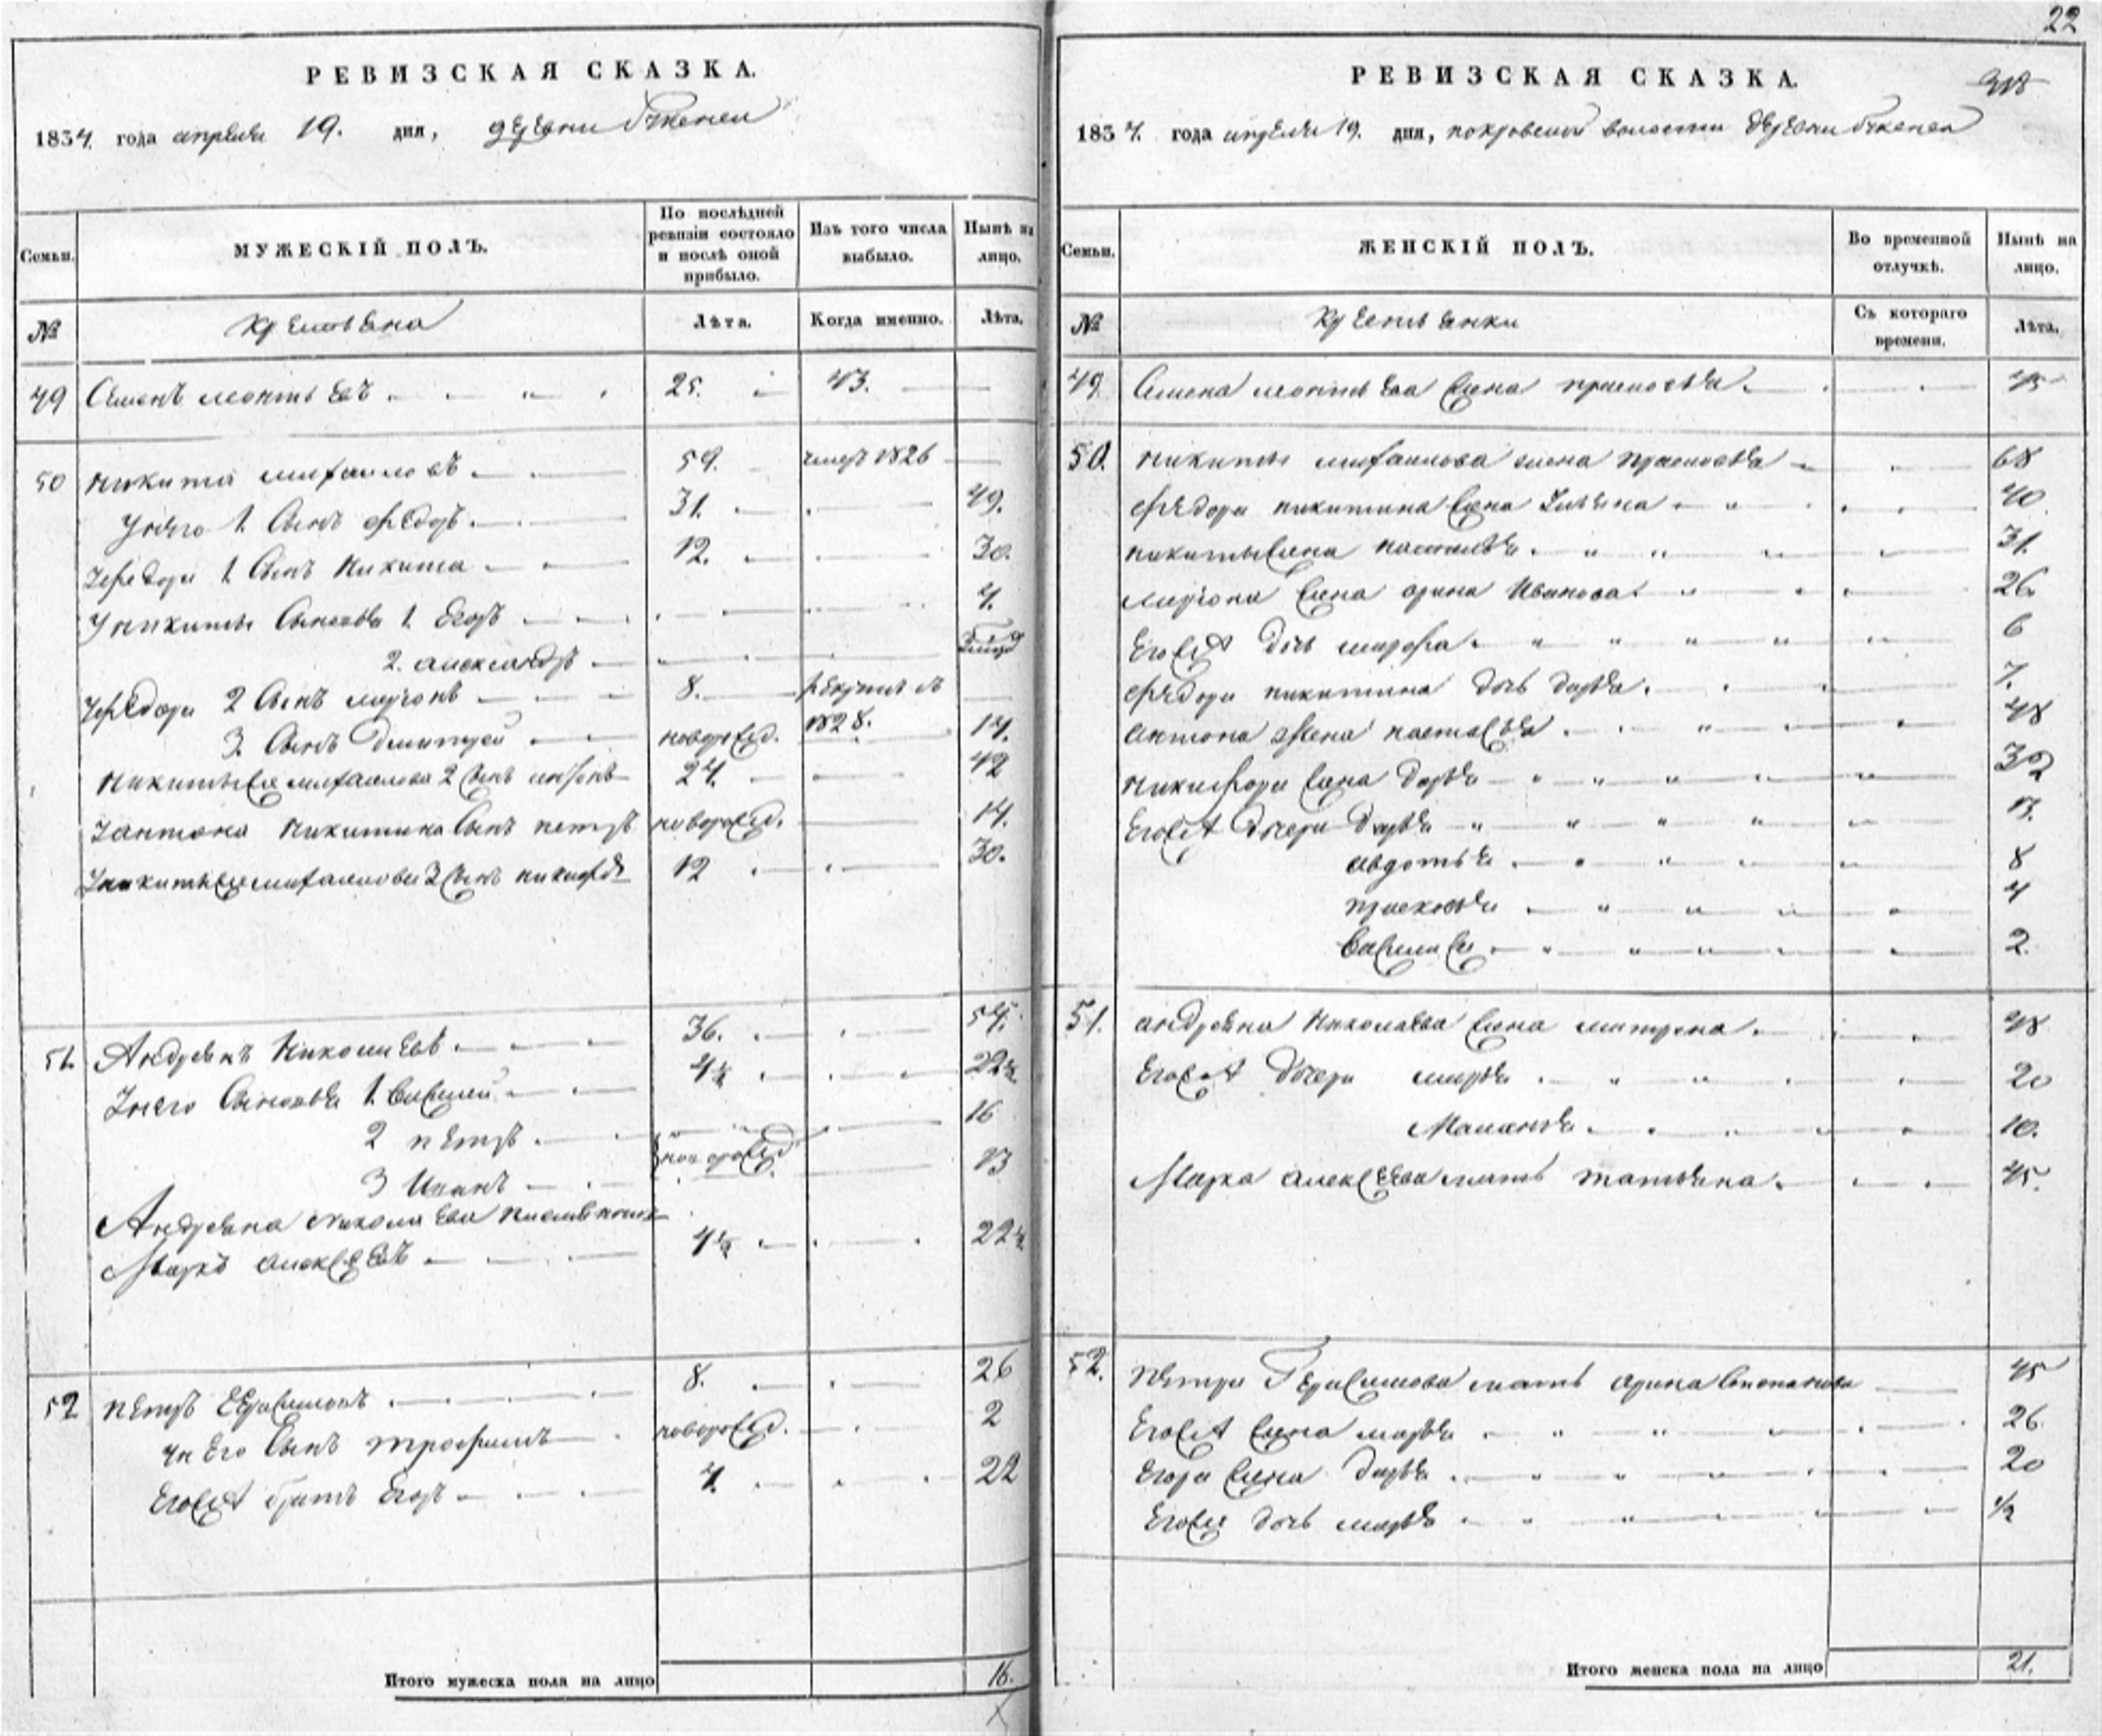 22
РЕВИЗСКАЯ СКАЗКА.
1834 года апреля 19. дня, деревни
Семьи.
МУЖЕСКІЙ ПОЛЪ.
По послѣдней ревизіи состояло и послѣ оной прибыло.
Изъ того числа выбыло.
Нынѣ на лицо.
№
крестьяне
Лѣта.
Когда именно.
Лѣта.
49 Семенъ леонтьевъ 25. 43.
50 Никита михаиловъ 59. умеръ 1826
У него 1. Сынъ Федоръ 31. 49.
У федора 1 Сынъ Никита 12. 30.
У никиты Сыновья 1. Егоръ 4.
2. александръ
У федора 2 Сынъ миронъ 8. рекрутъ въ
3. Сынъ Дмитрей новорожд. 1828. 14.
Никиты же михаилова 2 Сынъ антонъ 24. 42
У антона Никитина Сынъ петръ новорожд. 14.
У никиты же михаилова 3 Сынъ никифоръ 12 30.
51. Андреянъ Николаевъ 36. 54.
У него Сыновья 1. Василей 4½ 22½
2 петръ 16
3 Иванъ новорожд 13
Андреяна Николаева племянникъ
Маркъ алексеевъ 4½ 22½
52 петръ Герасимовъ 8. 26
у него Сынъ трофимъ новорожд. 2
Егоже братъ Егоръ 4. 22
Итого мужеска пола на лицо 16.
РЕВИЗСКАЯ СКАЗКА.
1834. года апреля 19. дня, покровской волости деревни
Семьи.
ЖЕНСКІЙ ПОЛЪ.
Во временной отлучкѣ.
Нынѣ на лицо.
№
крестьянки
Съ котораго времени.
Лѣта.
49. Семена леонтьева жена прасковья 45
50. никиты михаилова жена прасковья 68
федора никитина жена 40
никиты жена настасья 31.
мирона жена арина Иванова 26
Егоже дочь марфа 6
федора никитина дочь дарья 7.
антона жена настасья 48
никифора жена дарья 32
Егоже дочери дарья 13.
авдотья 8
прасковья 4
Василиса 2.
51. андреяна Николаева жена матрена 48
Егоже дочери марья 20
Маланья 10.
Марка алексеева мать татьяна 45.
52. петра Герасимова мать арина Степанова 45
Егоже жена марья 26
Егора жена дарья 20
Егоже дочь марья ½
Итого женска пола на лицо 21.